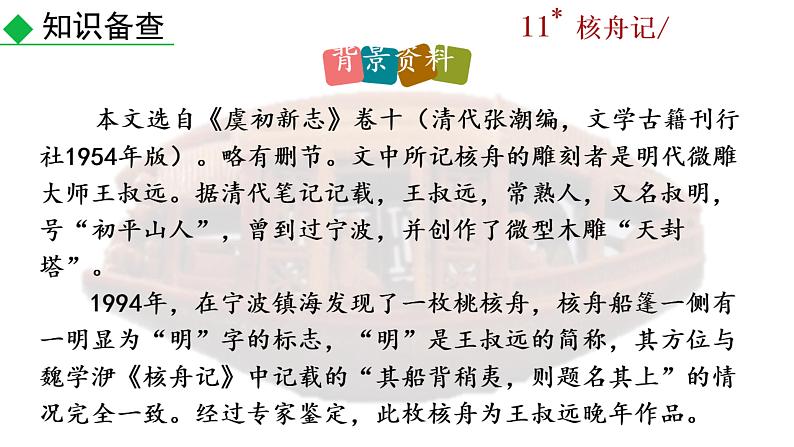 知识备查
11* 核舟记/
背景资料
本文选自《虞初新志》卷十（清代张潮编，文学古籍刊行
社1954年版）。略有删节。文中所记核舟的雕刻者是明代微雕
大师王叔远。据清代笔记记载，王叔远，常熟人，又名叔明，
号“初平山人”，曾到过宁波，并创作了微型木雕“天封
塔”。
1994年，在宁波镇海发现了一枚桃核舟，核舟船篷一侧有
一明显为“明”字的标志，“明”是王叔远的简称，其方位与
魏学洢《核舟记》中记载的“其船背稍夷，则题名其上”的情
况完全一致。经过专家鉴定，此枚核舟为王叔远晚年作品。